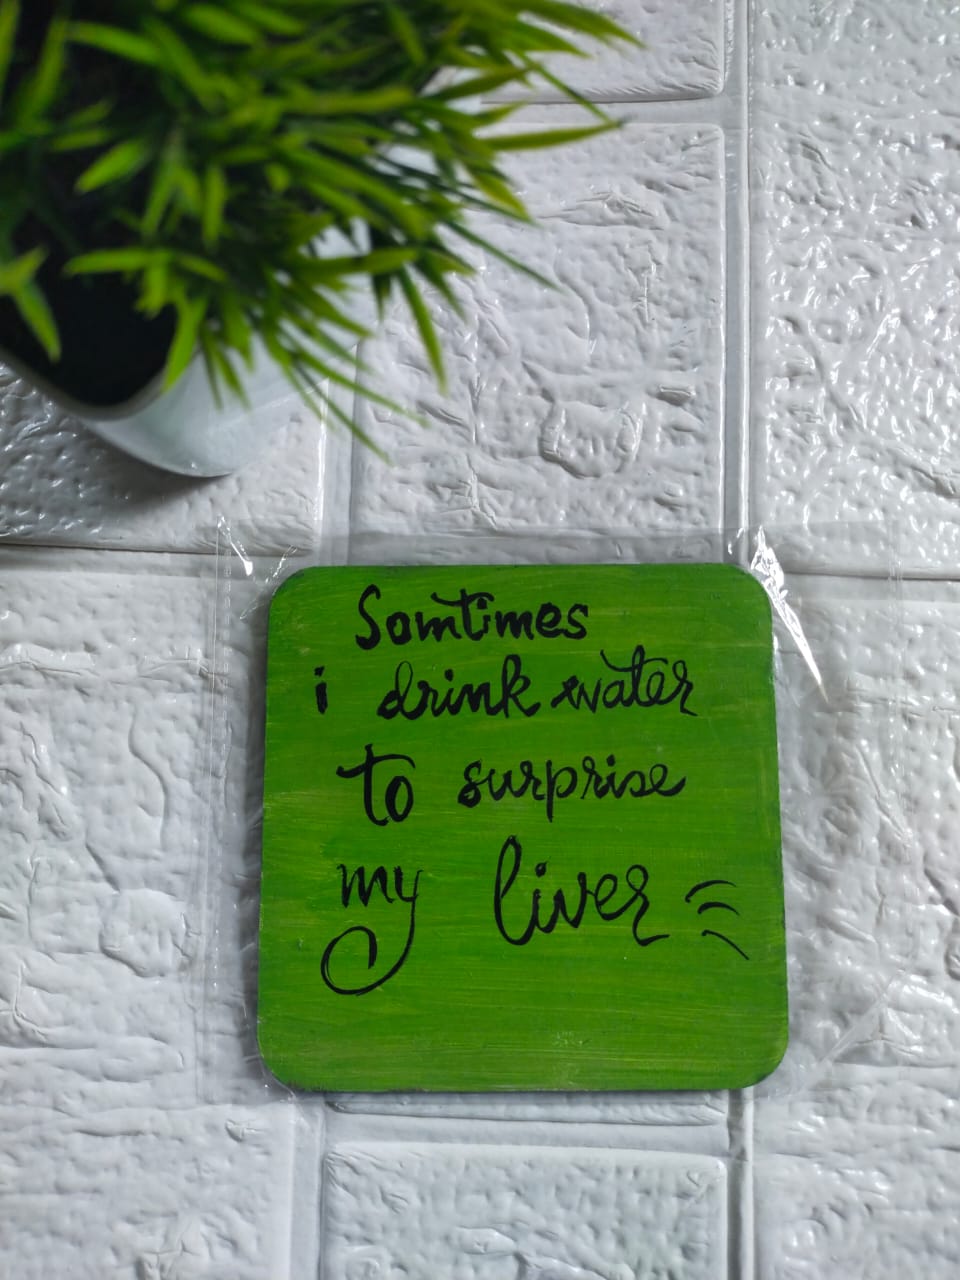 Somtimes
i drink water
to surprise
my liver